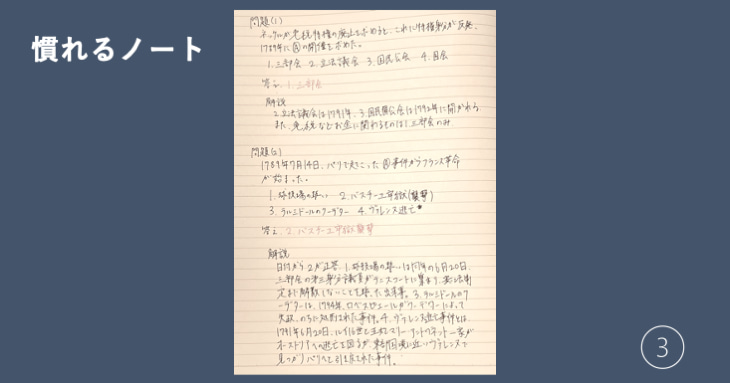 慣れるノート
問題(1)
ネッケルが免税特権の廃止を求めると、これに特権身分が反発、
1789年にⒶの開催を求めた。
1.三部会 2.立法議会 3.国民公会 4.国会
答え、1.三部会
解説
2.立法議会は1791年、3.国民公会は1792年に開かれる
また、免税などお金に関わるものは1.三部会のみ
問題(2)
1789年7月14日、パリで起こったⒶ事件からフランス革命
が始まった。
1.球技場の誓い 2.バスチーユ牢獄(襲撃)
3.テルミドールのクーデター 4.ヴァレンヌ逃亡
答え、2.バスチーユ牢獄襲撃
解説
日付から2が正答。1.球技場の誓いは同年の6月20日、
三部会の第三身分議員がテニスコートに集まり、憲法制
定まで解散しないことを誓った出来事。3.テルミドールのク
ーデターは、1794年、ロベスピエールがクーデターによって
失脚、のちに処刑された事件。4.ヴァレンヌ逃亡事件とは、
1791年6月20日、ルイ16世と王妃マリー・アントワネット一家が
オーストリアへの逃亡を図るが、東部国境に近いヴァレンヌで
見つかりパリへと引き戻された事件。
3